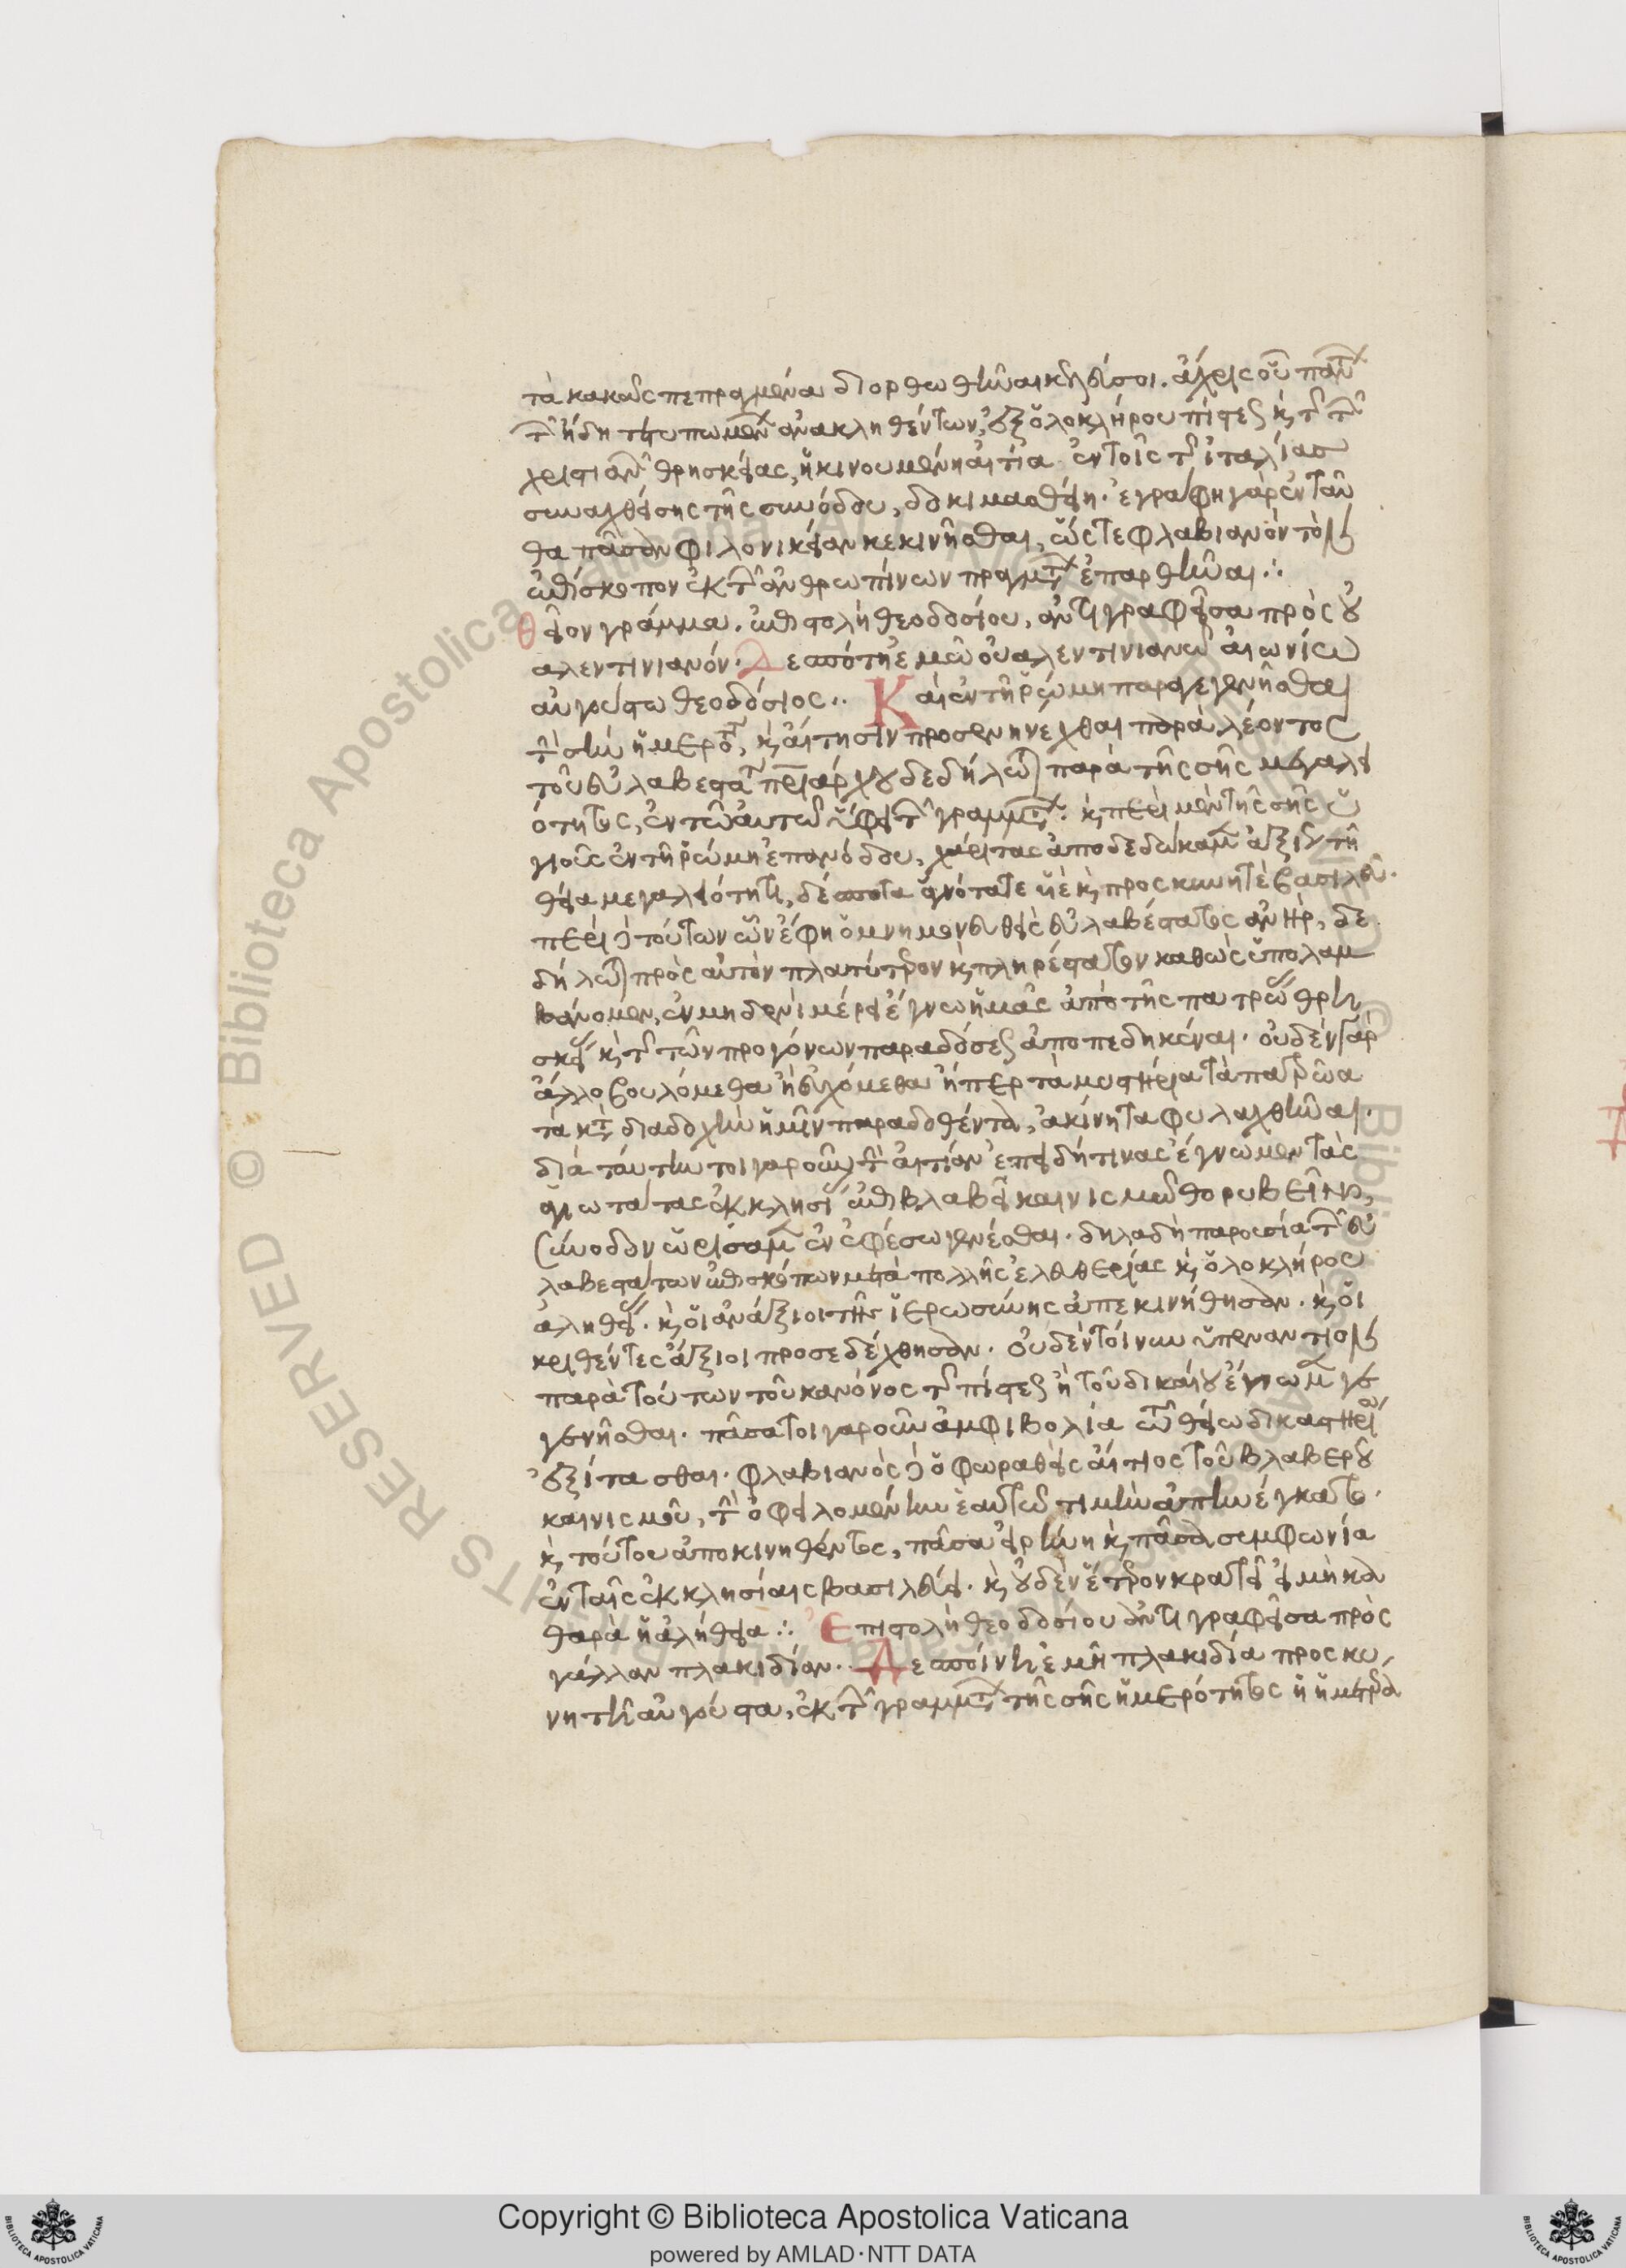 τὰ κακῶς πεπραγμένα διορθωθῆναι κελεύσοι. ἄχρις οὗ πάντων
τῶν ἤδη τετυπωμένων ἀνακληθέντων, ἐξ ὁλοκλήρου πίστεως καὶ τῆς τῶν
χριστιανῶν θρησκείας, ἡ κινουμένη αἰτία ἐν τοῖς τῆς ἰταλίας
συναχθείσης τῆς συνόδου, δοκιμασθείη. ἐγράφη γὰρ ἐνταῦ
θα πᾶσαν φιλονικείαν κεκινῆσθαι, ὥστε φλαβιανὸν τὸν
ἐπίσκοπον ἐκ τῶν ἀνθρωπίνων πραγμάτων ἐπαρθῆναι ∴
θεῖον γράμμα. ἐπιστολὴ θεοδοσίου, ἀντιγραφεῖσα πρὸς οὐ
αλεντινιανόν. Δεσπότῃ ἐμῷ οὐαλεντινιανῷ αἰωνίῳ
αὐγούστῳ θεοδόσιος .. Καὶ ἐν τῇ ῥώμῃ παραγεγενῆσθαι
τὴν σὴν ἡμερότητα, καὶ αἴτησιν προσενηνέχθαι παρὰ λέοντος
τοῦ εὐλαβεστάτου πατριάρχου δεδήλωται παρὰ τῆς σῆς μεγαλει
ότητος, ἐν τῷ αὐτῷ ὕφει τῶν γραμμάτων. καὶ περὶ μὲν τῆς σῆς ὑ
γιοῦς ἐν τῇ ῥώμῃ ἐπανόδου, χάριτας ἀποδεδώκαμεν ἀξίως τῇ
θείᾳ μεγαλειότητι, δέσποτα ἁγνότατε υἱὲ καὶ προσκυνητὲ βασιλεῦ.
περὶ δὲ τούτων ὧν ἔφη ὁ μνημονευθεὶς εὐλαβέστατος ἀνὴρ, δε
δήλωται πρὸς αὐτὸν πλατύτερον καὶ πληρέστατον καθὼς ὑπολαμ
βάνομεν, ἐν μηδενὶ μέρει ἔγνω ἡμᾶς ἀπὸ τῆς πατρῴας θρη
σκείας καὶ τῆς τῶν προγόνων παραδόσεως ἀποπεδηκέναι. οὐδὲν γὰρ
ἄλλο βουλόμεθα ἢ εὐχόμεθα ἤπερ τὰ μυστήρια τὰ πατρῷα
τὰ κατὰ διαδοχὴν ἡμῖν παραδοθέντα, ἀκίνητα φυλαχθῆναι.
διὰ ταύτην τοιγαροῦν τὴν αἰτίαν ἐπειδή τινας ἔγνωμεν τὰς
ἁγιωτάτας ἐκκλησίας ἐπιβλαβεῖ καινισμῷ θορυβεῖν,
σύνοδον ὡρίσαμεν ἐν ἐφέσῳ γενέσθαι. δηλαδὴ παρουσίᾳ τῶν εὐ
λαβεστάτων ἐπισκόπων μετὰ πολλῆς ἐλευθερίας καὶ ὁλοκλήρου
ἀληθείας. καὶ οἱ ἀνάξιοι τῆς ἱερωσύνης ἀπεκινήθησαν. καὶ οἱ
κριθέντες ἄξιοι προσεδέχθησαν. οὐδὲν τοίνυν ὑπεναντίον
παρὰ τούτων τοῦ κανόνος τῆς πίστεως ἢ τοῦ δικαίου ἔγνωμεν γε
γενῆσθαι. πᾶσα τοιγαροῦν ἀμφιβολία τῷ θείῳ δικαστηρίῳ
ἐξίτασθαι. φλαβιανὸς δὲ ὁ φωραθεὶς αἴτιος τοῦ βλαβεροῦ
καινισμοῦ, τὴν ὀφειλομένην ἑαυτῷ τιμὴν ἀπηνέγκατο.
καὶ τούτου ἀποκινηθέντος, πᾶσα εἰρήνη καὶ πᾶσα συμφωνία
ἐν ταῖς ἐκκλησίαις βασιλεύει. καὶ οὐδὲν ἕτερον κρατεῖ εἰ μὴ κα
θαρὰ ἡ ἀλήθεια ∴ Ἐπιστολὴ θεοδοσίου ἀντιγραφεῖσα πρὸς
γάλλαν πλακιδίαν. Δεσποίνῃ ἐμῇ πλακιδίᾳ προσκυ
νητῇ αὐγούστᾳ, ἐκ τῶν γραμμάτων τῆς σῆς ἡμερότητος ἡ ἡμετέρα
© Biblioteca Apostolica Vaticana ALL RIGHTS RESERVED
Copyright © Biblioteca Apostolica Vaticana
powered by AMLAD·NTT DATA